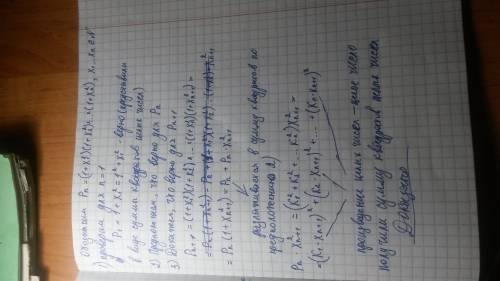 Обозначим Pn = (1+x1²)(1+x2²)·...·(1+xn²), x1...xn ∈ N
1) проверим для n=1
P1 = 1+x1² = 1² + x1² - верно (представили
в виде суммы квадратов целых чисел)
2) Предположим, что верно для Pn
3) Докажем, что верно для Pn+1
Pn+1 = (1+x1²)(1+x2²)·...·(1+xn²)(1+xn+1²) =
= Pn(1+xn+1²) =
= Pn(1+xn+1²) = Pn + Pn·xn+1²
раскладывается в сумму квадратов по
предположению 2)
Pn·xn+1² = (k1²+k2²+...+kn²)xn+1² =
= (k1·xn+1)² + (k2·xn+1)² + ... + (kn·xn+1)²
произведение целых чисел - целое число
получили сумму квадратов целых чисел
Доказано